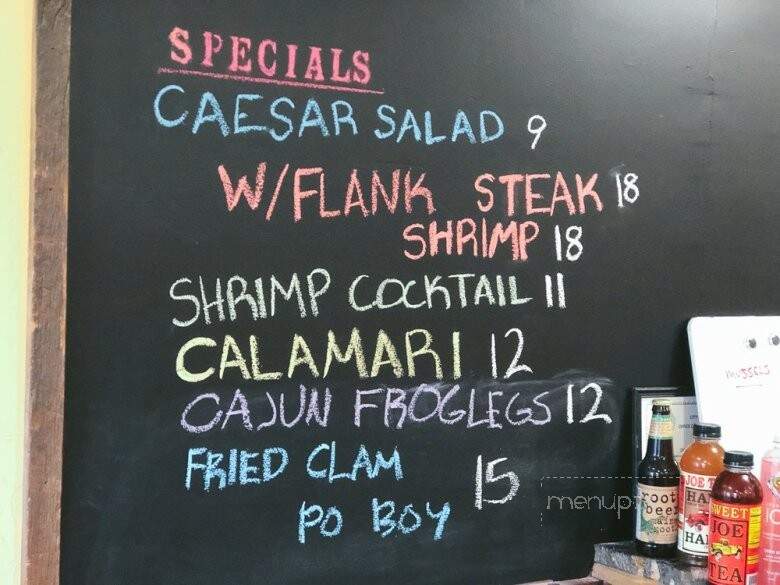 SPECIALS
CAESAR SALAD 9
W/FLANK STEAK 18
SHRIMP 18
SHRIMP COCKTAIL 11
CALAMARI 12
CAJUN FROGLEGS 12
FRIED CLAM
PO BOY 15
menup
MUSSELS
root
beer
JOE T
HA
HA
SWEET
JOE
TEA